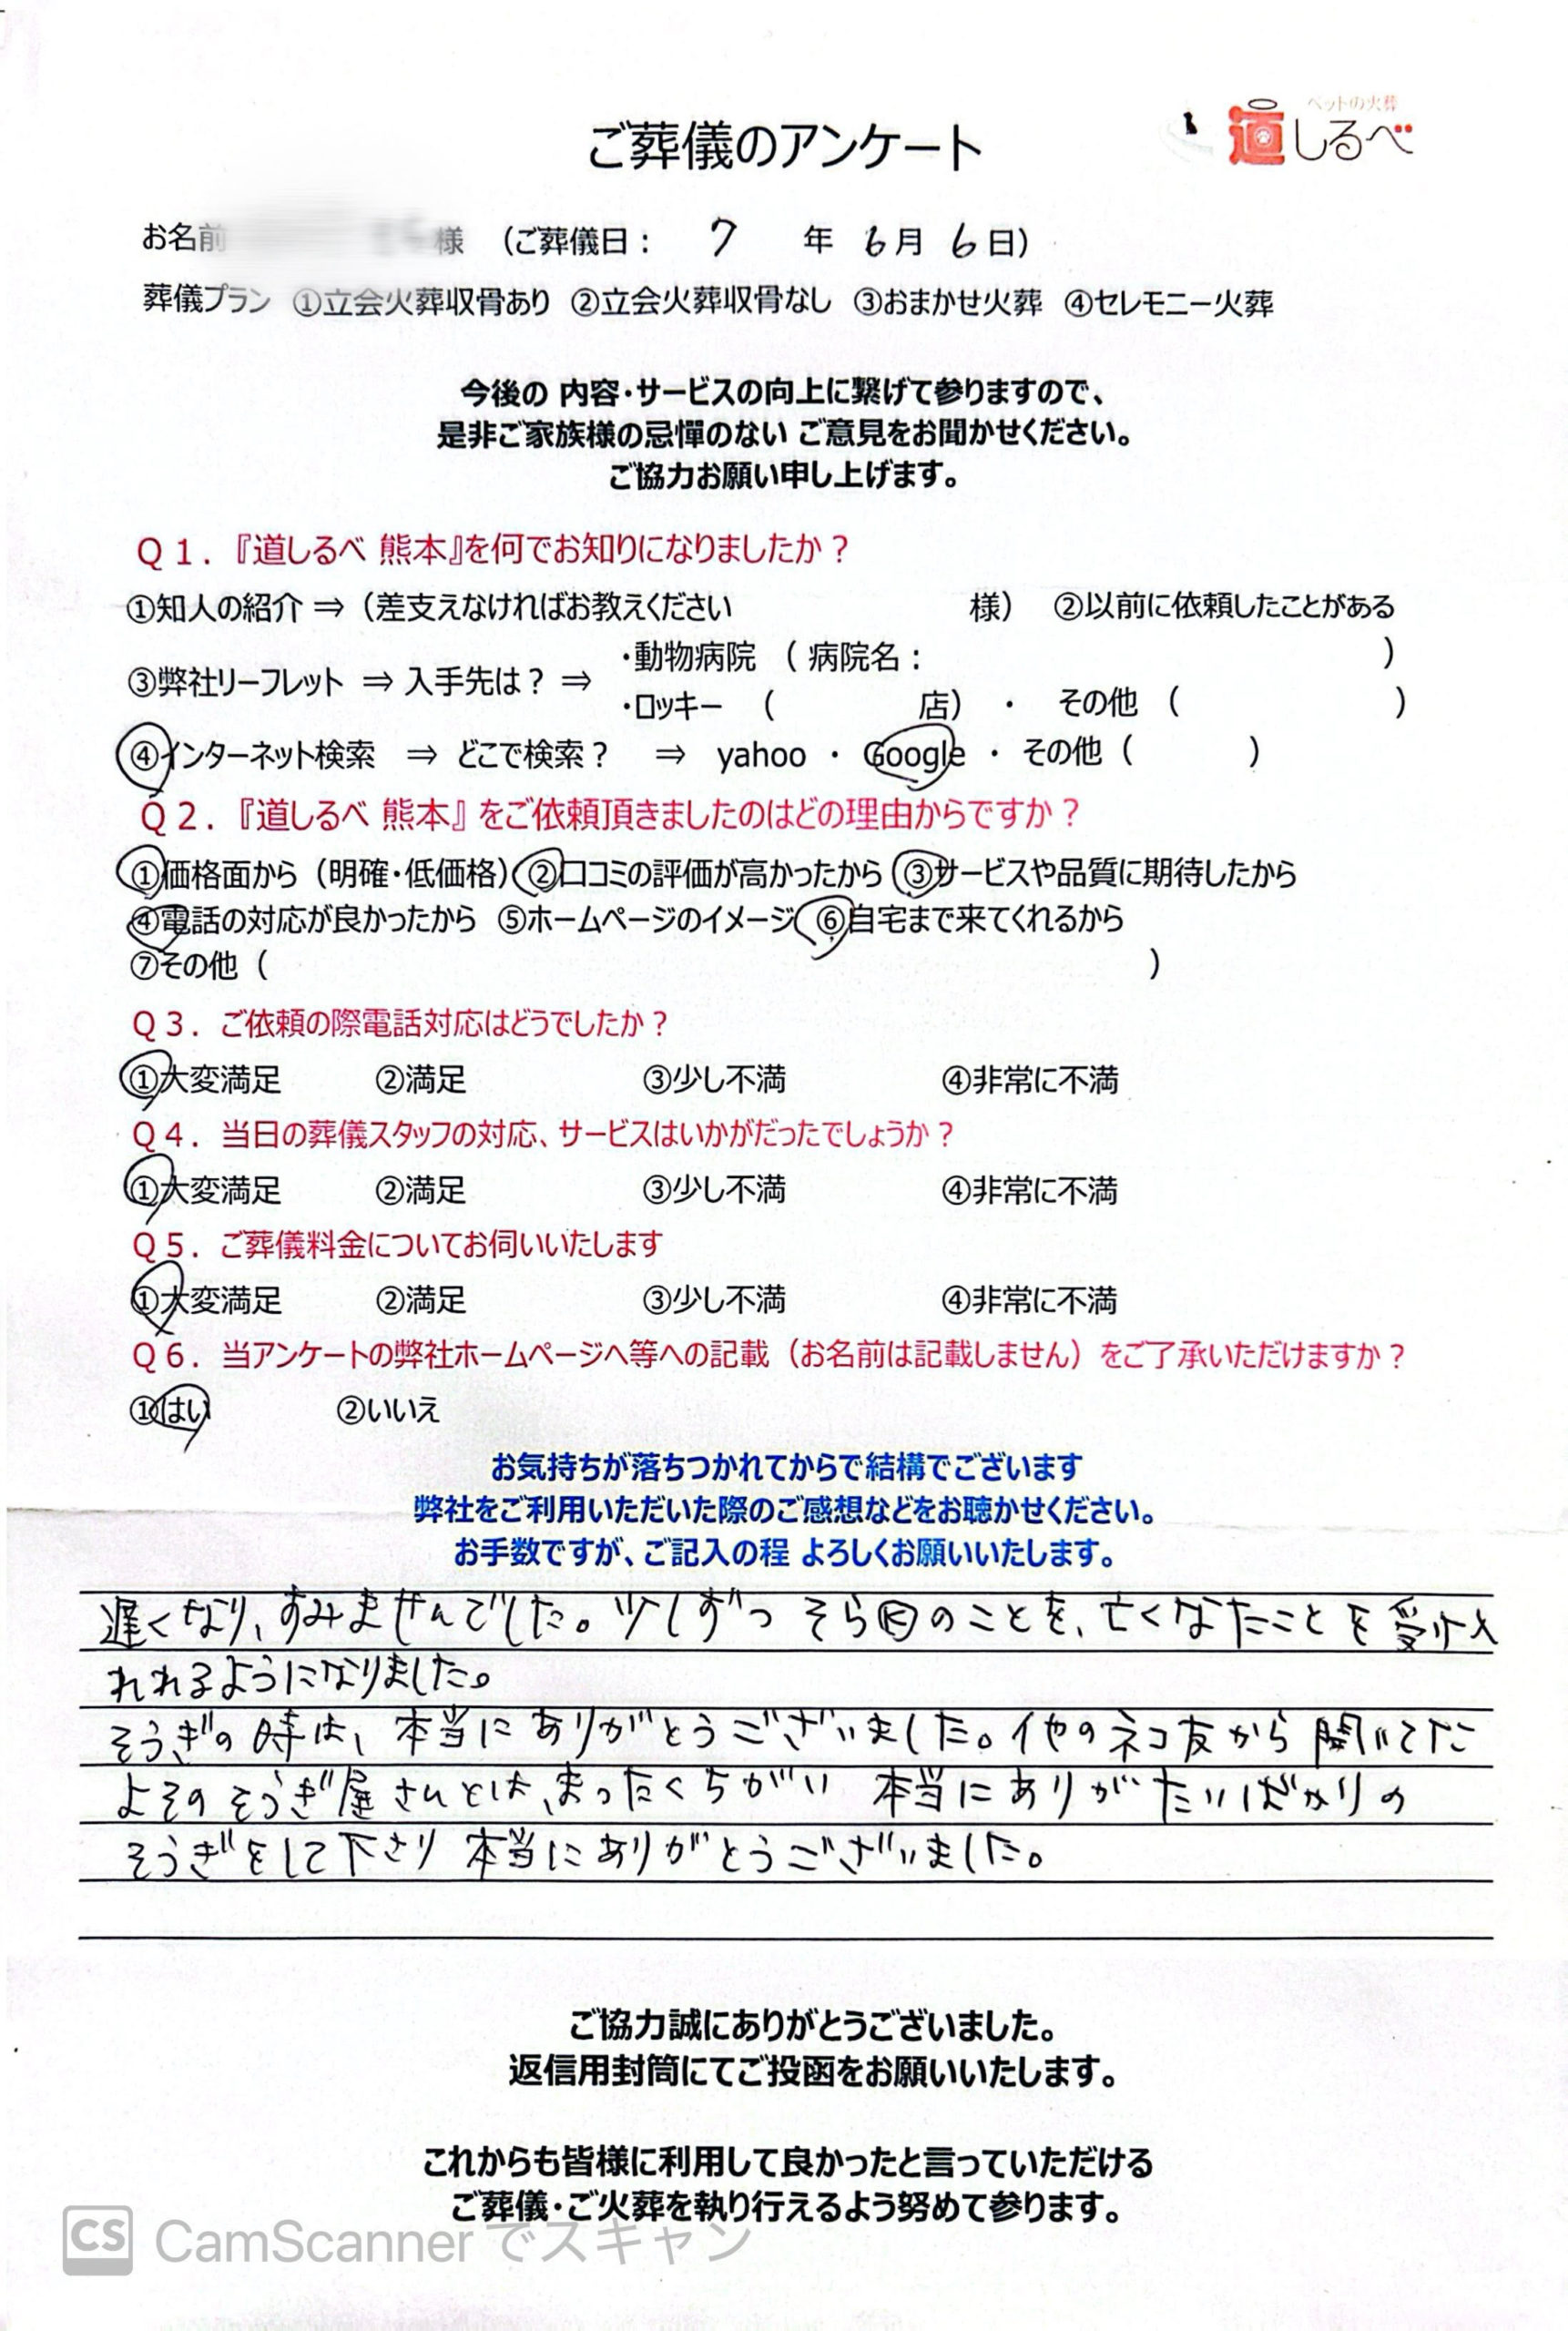 ペットの火葬
道しるべ
ご葬儀のアンケート
お名前 様 （ご葬儀日： 7 年 6月 6日）
葬儀プラン ①立会火葬収骨あり ②立会火葬収骨なし ③おまかせ火葬 ④セレモニー火葬
今後の 内容・サービスの向上に繋げて参りますので、
是非ご家族様の忌憚のない ご意見をお聞かせください。
ご協力お願い申し上げます。
Q１．『道しるべ 熊本』を何でお知りになりましたか？
①知人の紹介 ⇒（差支えなければお教えください 様） ②以前に依頼したことがある
③弊社リーフレット ⇒ 入手先は？ ⇒ ・動物病院 （ 病院名： ）
・ロッキー （ 店） ・ その他 （ ）
④インターネット検索 ⇒ どこで検索？ ⇒ yahoo ・ Google ・ その他（ ）
Q２．『道しるべ 熊本』をご依頼頂きましたのはどの理由からですか？
①価格面から（明確・低価格）②口コミの評価が高かったから ③サービスや品質に期待したから
④電話の対応が良かったから ⑤ホームページのイメージ ⑥自宅まで来てくれるから
⑦その他（ ）
Q３．ご依頼の際電話対応はどうでしたか？
①大変満足 ②満足 ③少し不満 ④非常に不満
Q４．当日の葬儀スタッフの対応、サービスはいかがだったでしょうか？
①大変満足 ②満足 ③少し不満 ④非常に不満
Q５．ご葬儀料金についてお伺いいたします
①大変満足 ②満足 ③少し不満 ④非常に不満
Q６．当アンケートの弊社ホームページへ等への記載（お名前は記載しません）をご了承いただけますか？
①はい ②いいえ
お気持ちが落ちつかれてからで結構でございます
弊社をご利用いただいた際のご感想などをお聴かせください。
お手数ですが、ご記入の程 よろしくお願いいたします。
遅くなり、すみませんでした。少しずつ そら のことを、亡くなたことを受け入
れれるようになりました。
そうぎの時は、本当にありがとうございました。他のネコ友から聞いてた
よそのそうぎ屋さんとは、まったくちがい 本当にありがたいばかりの
そうぎをして下さり 本当にありがとうございました。
ご協力誠にありがとうございました。
返信用封筒にてご投函をお願いいたします。
これからも皆様に利用して良かったと言っていただける
ご葬儀・ご火葬を執り行えるよう努めて参ります。
CS CamScanner でスキャン